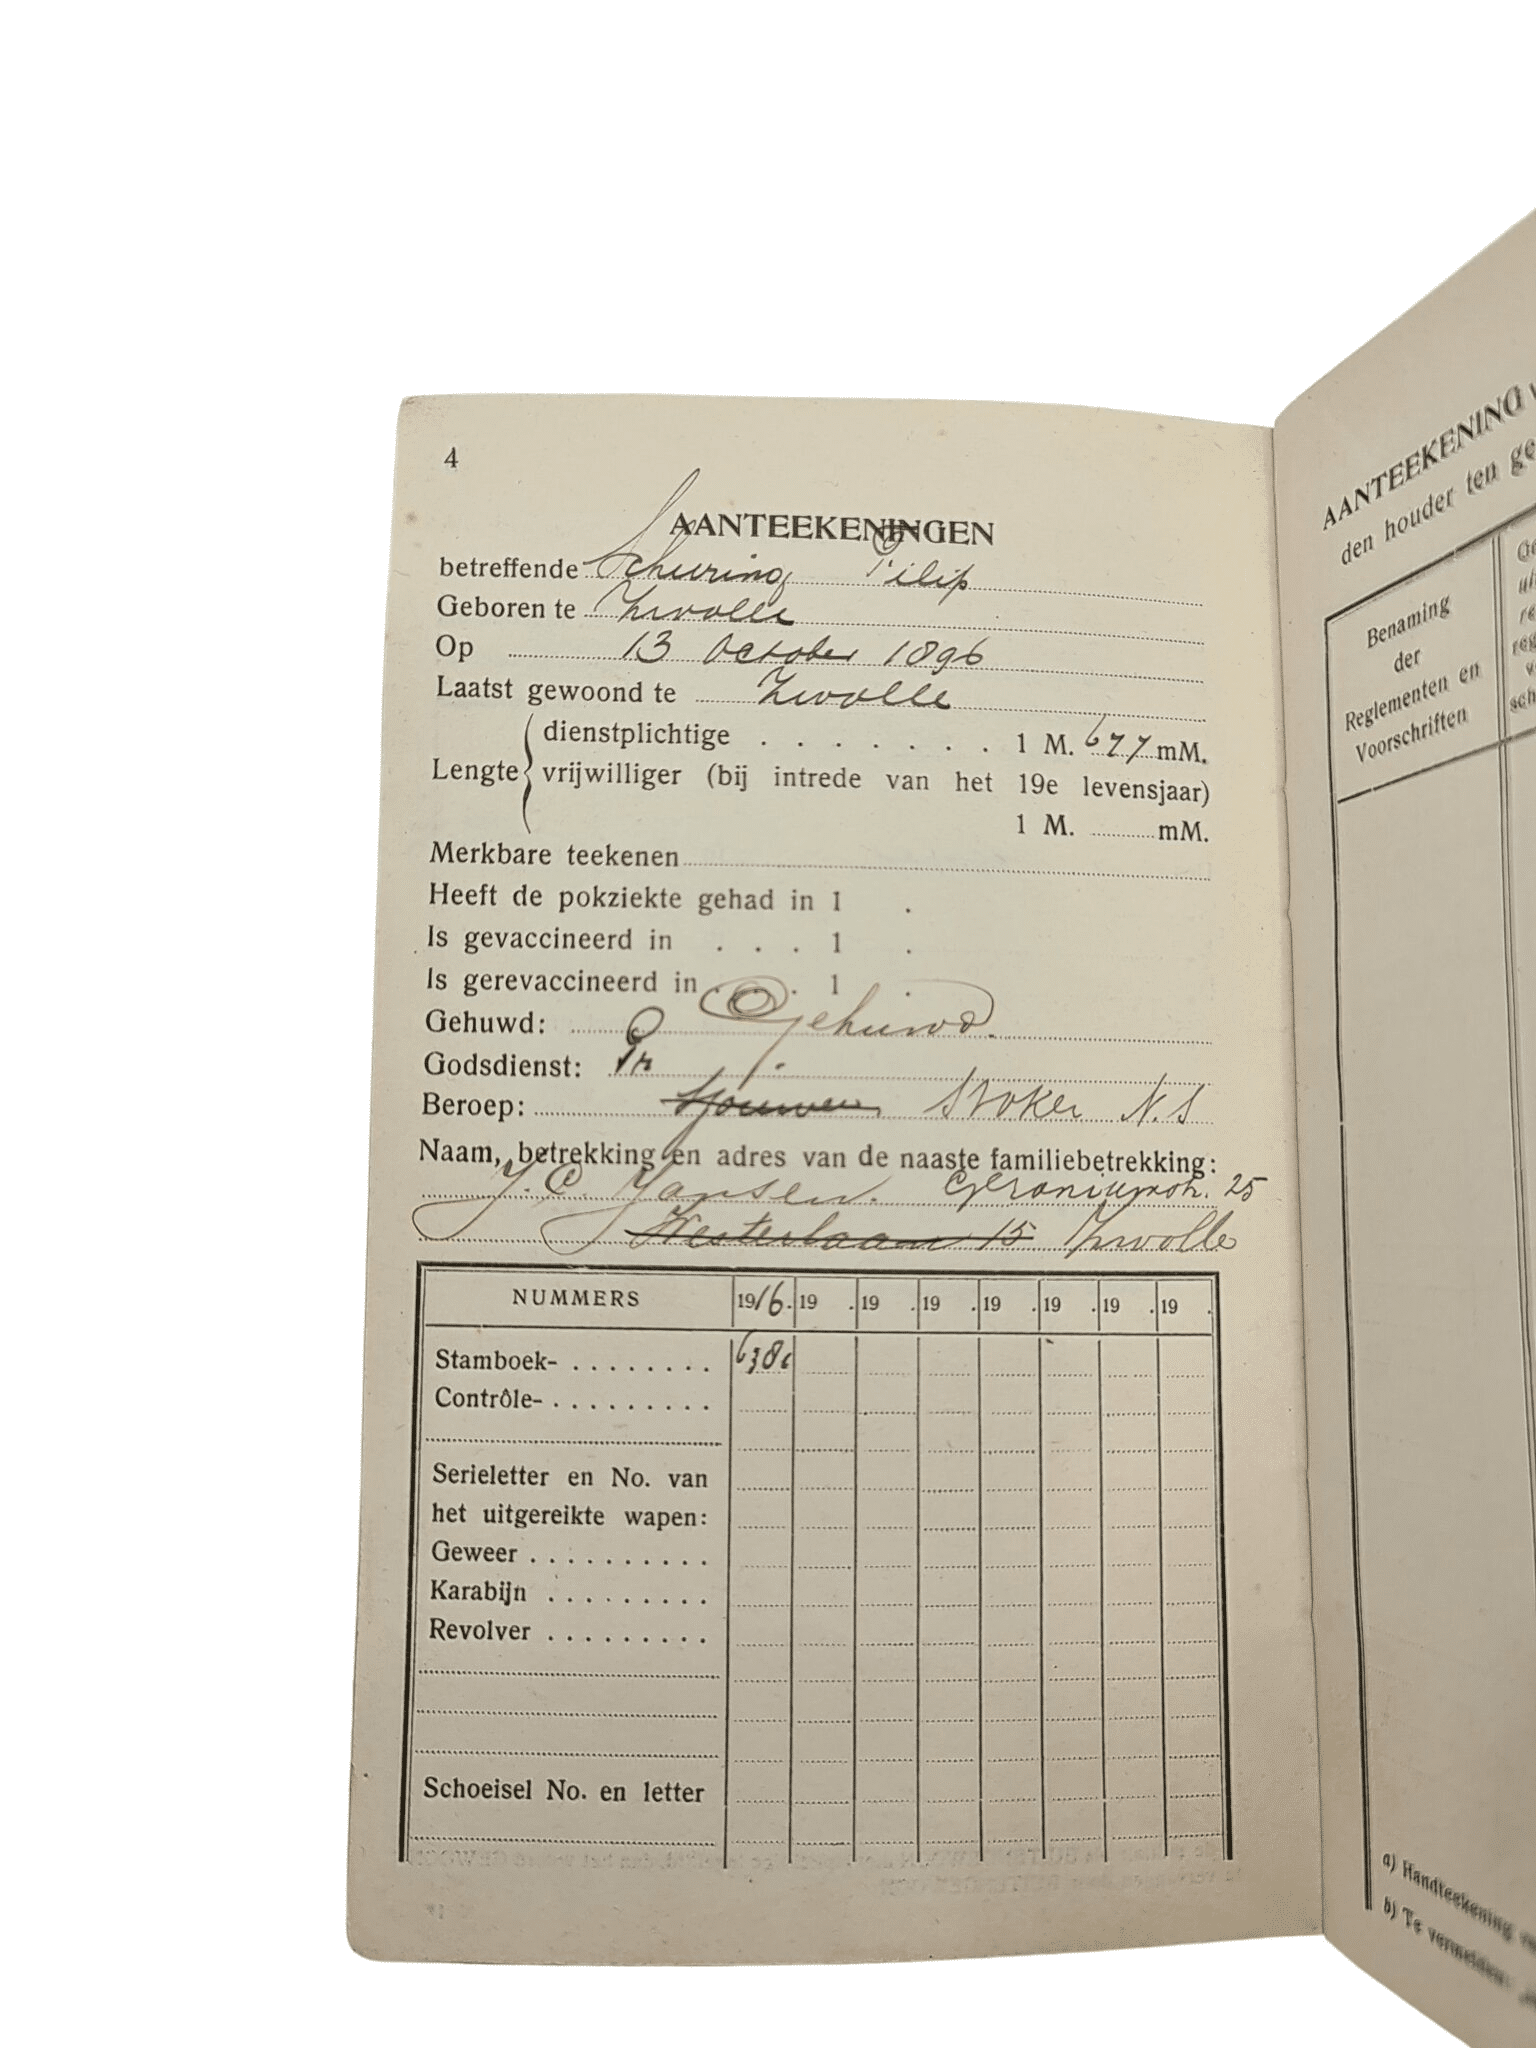 4
AANTEEKENINGEN
betreffende Schuring Filip
Geboren te Zwolle
Op 13 October 1896
Laatst gewoond te Zwolle
Lengte dienstplichtige . . . . . . . 1 M. 677 mM.
vrijwilliger (bij intrede van het 19e levensjaar)
1 M. mM.
Merkbare teekenen
Heeft de pokziekte gehad in 1 .
Is gevaccineerd in . . . 1 .
Is gerevaccineerd in . . . 1 .
Gehuwd: Gehuwd.
Godsdienst: Pr
Beroep: Stoker N.S
Naam, betrekking en adres van de naaste familiebetrekking:
J. C. Jansen. Geraniumstr. 25
Westerlaan 15 Zwolle
NUMMERS 1916. 19 . 19 . 19 . 19 . 19 . 19 . 19 .
Stamboek- . . . . . . . .
Contrôle- . . . . . . . . .
Serieletter en No. van
het uitgereikte wapen:
Geweer . . . . . . . . . .
Karabijn . . . . . . . . .
Revolver . . . . . . . . .
Schoeisel No. en letter
AANTEEKENING
den houder ten
Benaming
der
Reglementen en
Voorschriften
a) Handteekening
b) Te vermelden: